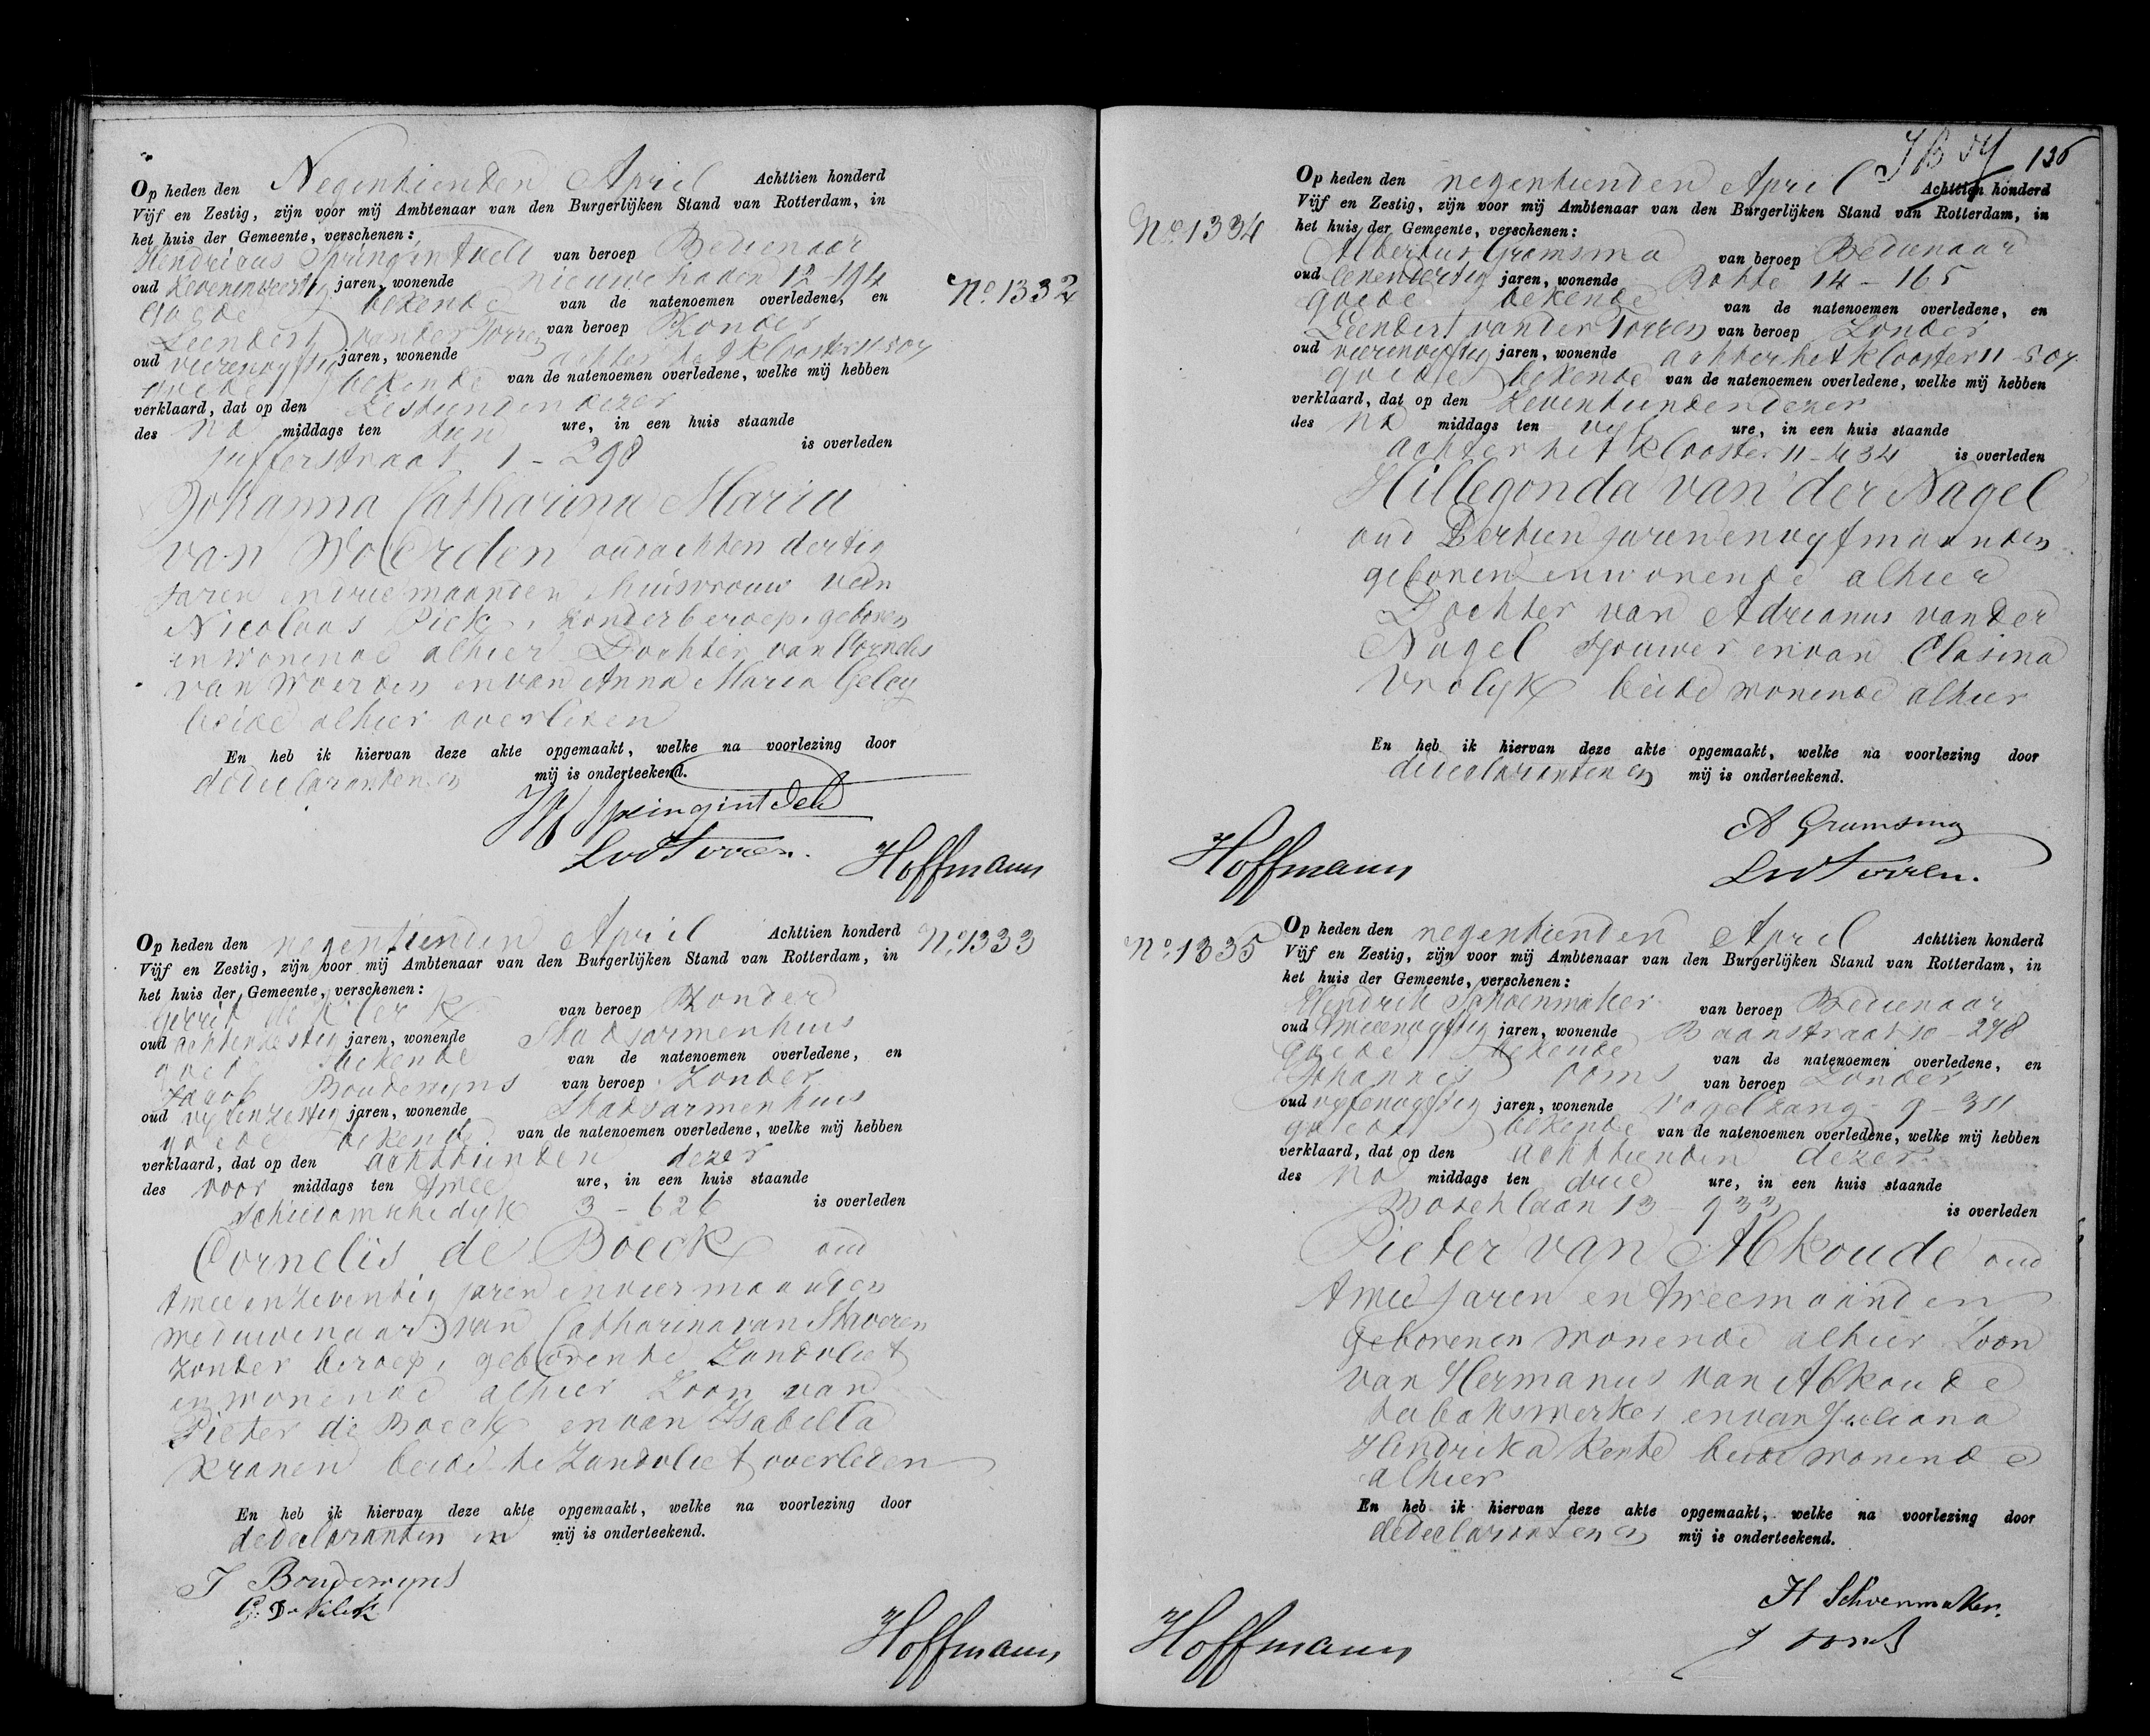 Op heden den Negentienden April Achttien honderd
Vijf en Zestig, zijn voor mij Ambtenaar van den Burgerlijken Stand van Rotterdam, in
het huis der Gemeente, verschenen:
Hendricus Springintveld van beroep Bedienaar
oud zevenenveertig jaren, wonende nieuwehaven 12-194
goede bekende van de natenoemen overledene, en
Leendert van der Torren van beroep Zonder
oud vierenvyftig jaren, wonende achter het Klooster 11-504
goede bekende van de natenoemen overledene, welke mij hebben
verklaard, dat op den Zestienden dezer
des na middags ten tien ure, in een huis staande
Jufferstraat 1-298 is overleden
Johanna Catharina Maria
van Woerden oud achten dertig
jaren en drie maanden huisvrouw van
Nicolaas Piek, zonder beroep, geboren
en wonende alhier Dochter van Cornelis
van Woerden en van Anna Maria Geley
beide alhier overleden
En heb ik hiervan deze akte opgemaakt, welke na voorlezing door
de declaranten en mij is onderteekend.
Springintveld
LvdTorren.
Hoffmann
No. 1332
Op heden den negentienden April Achttien honderd
Vijf en Zestig, zijn voor mij Ambtenaar van den Burgerlijken Stand van Rotterdam, in
het huis der Gemeente, verschenen:
Gerrit de Klerk van beroep Zonder
oud achtenzestig jaren, wonende Stadsarmenhuis
goede bekende van de natenoemen overledene, en
Jacob Boudewyns van beroep Zonder
oud vyfenzestig jaren, wonende Stadsarmenhuis
goede bekende van de natenoemen overledene, welke mij hebben
verklaard, dat op den achttienden dezer
des voor middags ten twee ure, in een huis staande
Schiedamschedyk 3-626 is overleden
Cornelis de Boeck oud
twee en zeventig jaren en vier maanden
weduwenaar van Catharina van Staveren
zonder beroep, geboren te Zandvliet
en wonende alhier Zoon van
Pieter de Boeck en van Isabella
Kranen beide te Zandvliet overleden
En heb ik hiervan deze akte opgemaakt, welke na voorlezing door
de declaranten en mij is onderteekend.
J Boudewyns
G. De Klerk
Hoffmann
No. 1333
136
No. 1334
Op heden den negentienden April Achttien honderd
Vijf en Zestig, zijn voor mij Ambtenaar van den Burgerlijken Stand van Rotterdam, in
het huis der Gemeente, verschenen:
Albertus Gramsma van beroep Bedienaar
oud zevendertig jaren, wonende Botte 14-165
goede bekende van de natenoemen overledene, en
Leendert van der Torren van beroep Zonder
oud vierenvyftig jaren, wonende achter het Klooster 11-504
goede bekende van de natenoemen overledene, welke mij hebben
verklaard, dat op den Zeventienden dezer
des na middags ten vyf ure, in een huis staande
achter het Klooster 11-434 is overleden
Hillegonda van der Nagel
oud Dertien jaren en vyf maanden
geboren en wonende alhier
Dochter van Adrianus van der
Nagel sjouwer en van Clasina
Vrolyk beide wonende alhier
En heb ik hiervan deze akte opgemaakt, welke na voorlezing door
de declaranten en mij is onderteekend.
A Gramsma
LvdTorren.
Hoffmann
No. 1335
Op heden den negentienden April Achttien honderd
Vijf en Zestig, zijn voor mij Ambtenaar van den Burgerlijken Stand van Rotterdam, in
het huis der Gemeente, verschenen:
Hendrik Schoenmaker van beroep Bedienaar
oud tweeenvyftig jaren, wonende Baanstraat 10-298
goede bekende van de natenoemen overledene, en
Johannes Ooms van beroep Zonder
oud vyfenvyftig jaren, wonende Vogelzang 9-311
goede bekende van de natenoemen overledene, welke mij hebben
verklaard, dat op den achttienden dezer
des na middags ten drie ure, in een huis staande
Boschlaan 13-933 is overleden
Pieter van Abkoude oud
twee jaren en twee maanden
geboren en wonende alhier Zoon
van Hermanus van Abkoude
tabakswerker en van Juliana
Hendrika Kente beide wonende
alhier
En heb ik hiervan deze akte opgemaakt, welke na voorlezing door
de declaranten en mij is onderteekend.
H Schoenmaker.
J Ooms
Hoffmann